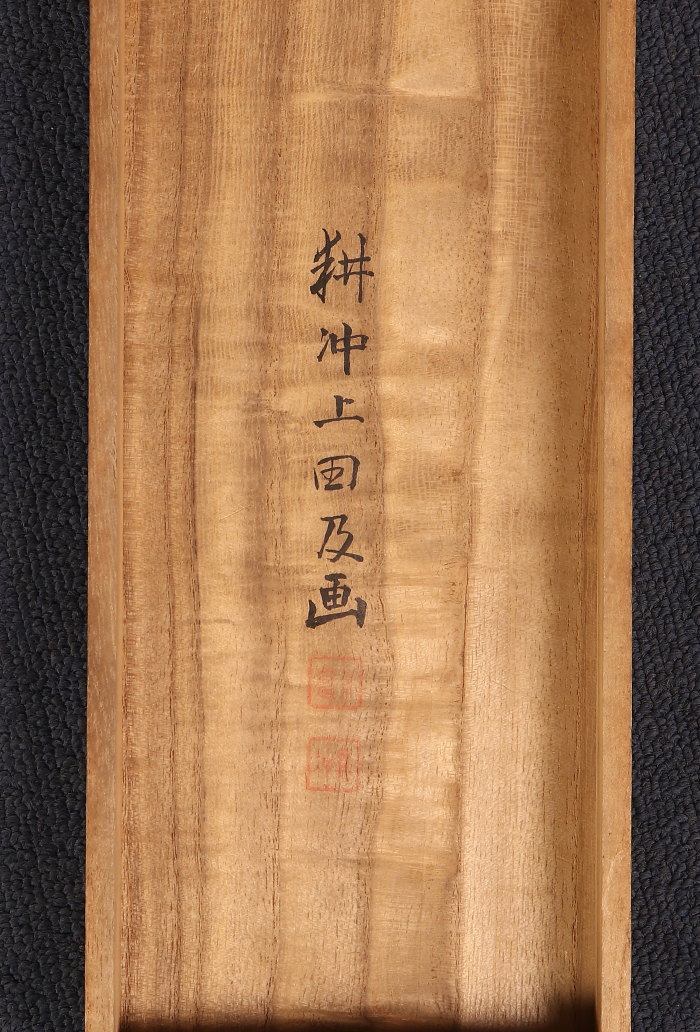 耕冲上田及画